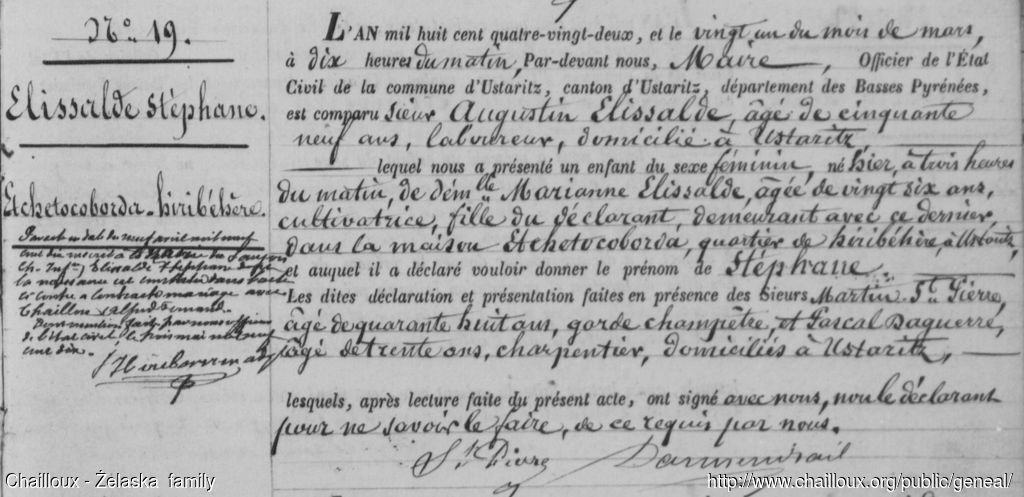 N° 19.
Elissalde Stéphane.
Etchetocoborda - hiribéhère.
ci contre a contracté mariage avec
Chailloux Alfred Armand.
L'AN mil huit cent quatre-vingt-deux, et le vingt un du mois de mars,
à dix heures du matin, Par-devant nous, Maire, Officier de l'État
Civil de la commune d'Ustaritz, canton d'Ustaritz, département des Basses Pyrénées,
est comparu sieur Augustin Elissalde, âgé de cinquante
neuf ans, laboureur, domicilié à Ustaritz
lequel nous a présenté un enfant du sexe féminin, né hier, à trois heures
du matin, de dem^lle Marianne Elissalde, âgée de vingt six ans,
cultivatrice, fille du déclarant, demeurant avec ce dernier,
dans la maison Etchetocoborda, quartier de hiribéhère, à Ustaritz,
et auquel il a déclaré vouloir donner le prénom de Stéphane.
Les dites déclaration et présentation faites en présence des Sieurs Martin S^t Pierre,
âgé de quarante huit ans, garde champêtre, et Pascal Daguerré,
âgé de trente ans, charpentier, domiciliés à Ustaritz,
lesquels, après lecture faite du présent acte, ont signé avec nous, non le déclarant
pour ne savoir le faire, de ce requis par nous.
S^t Pierre Darmendrail
Chailloux - Żelaska family
http://www.chailloux.org/public/geneal/